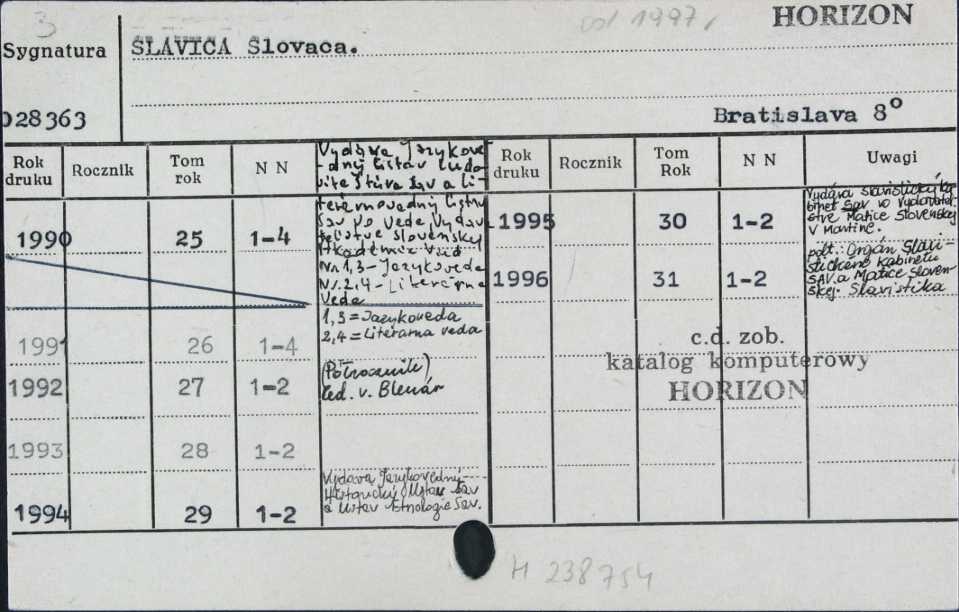 3
od 1997,
HORIZON
Sygnatura
SLAVICA Slovaca.
028363
Bratislava 8°
Rok druku
Rocznik
Tom rok
N N
Vydáva Jazykove-
-dný ústav Ľudo-
víta Štúra SAV a Li-
terárnovedný ústav
SAV vo Vede, vydav
teľstve Slovenskej
Akadémie vied
Nr. 1,3 – Jazykoveda
Nr. 2,4 – Literárna
Veda
Rok druku
Rocznik
Tom Rok
N N
Uwagi
1990 25 1-4
1,3 = Jazykoveda
2,4 = Literarna veda
1991 26 1-4
1992 27 1-2
(Półrocznik)
Red. v. Blanár
1993 28 1-2
1994 29 1-2
Vydáva Jazykovedný
Historický Ústav SAV
a Ústav Etnologie SAV.
1995 30 1-2
Vydáva slavistický ka-
binet SAV vo vydavateľ-
stve Matice Slovenskej
v Martine.
1996 31 1-2
pdt.: Orgán Slavi-
stického kabinetu
SAV a Matice Sloven-
skej. Slavistika
c.d. zob.
katalog komputerowy
HORIZON
H 238754